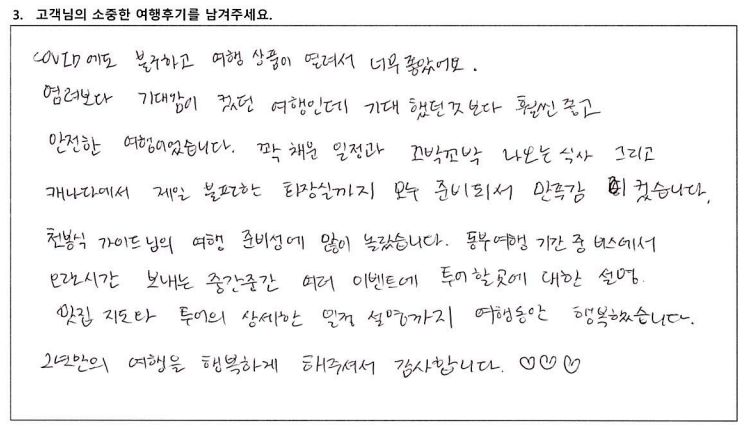 3. 고객님의 소중한 여행후기를 남겨주세요.
COVID에도 불구하고 여행 상품이 열려서 너무 좋았어요.
염려보다 기대감이 컸던 여행인데 기대 했던것 보다 훨씬 좋고
안전한 여행이었습니다. 꽉 채운 일정과 꼬박꼬박 나오는 식사 그리고
캐나다에서 제일 불편한 화장실까지 모두 준비되서 만족감이 컸습니다.
천봉식 가이드님의 여행 준비성에 많이 놀랐습니다. 동부여행 기간 중 버스에서
오랜시간 보내는 중간중간 여러 이벤트에 투어할곳에 대한 설명.
맛집 지도와 투어의 상세한 일정 설명까지 여행동안 행복했습니다.
2년만의 여행을 행복하게 해주셔서 감사합니다. ♡♡♡